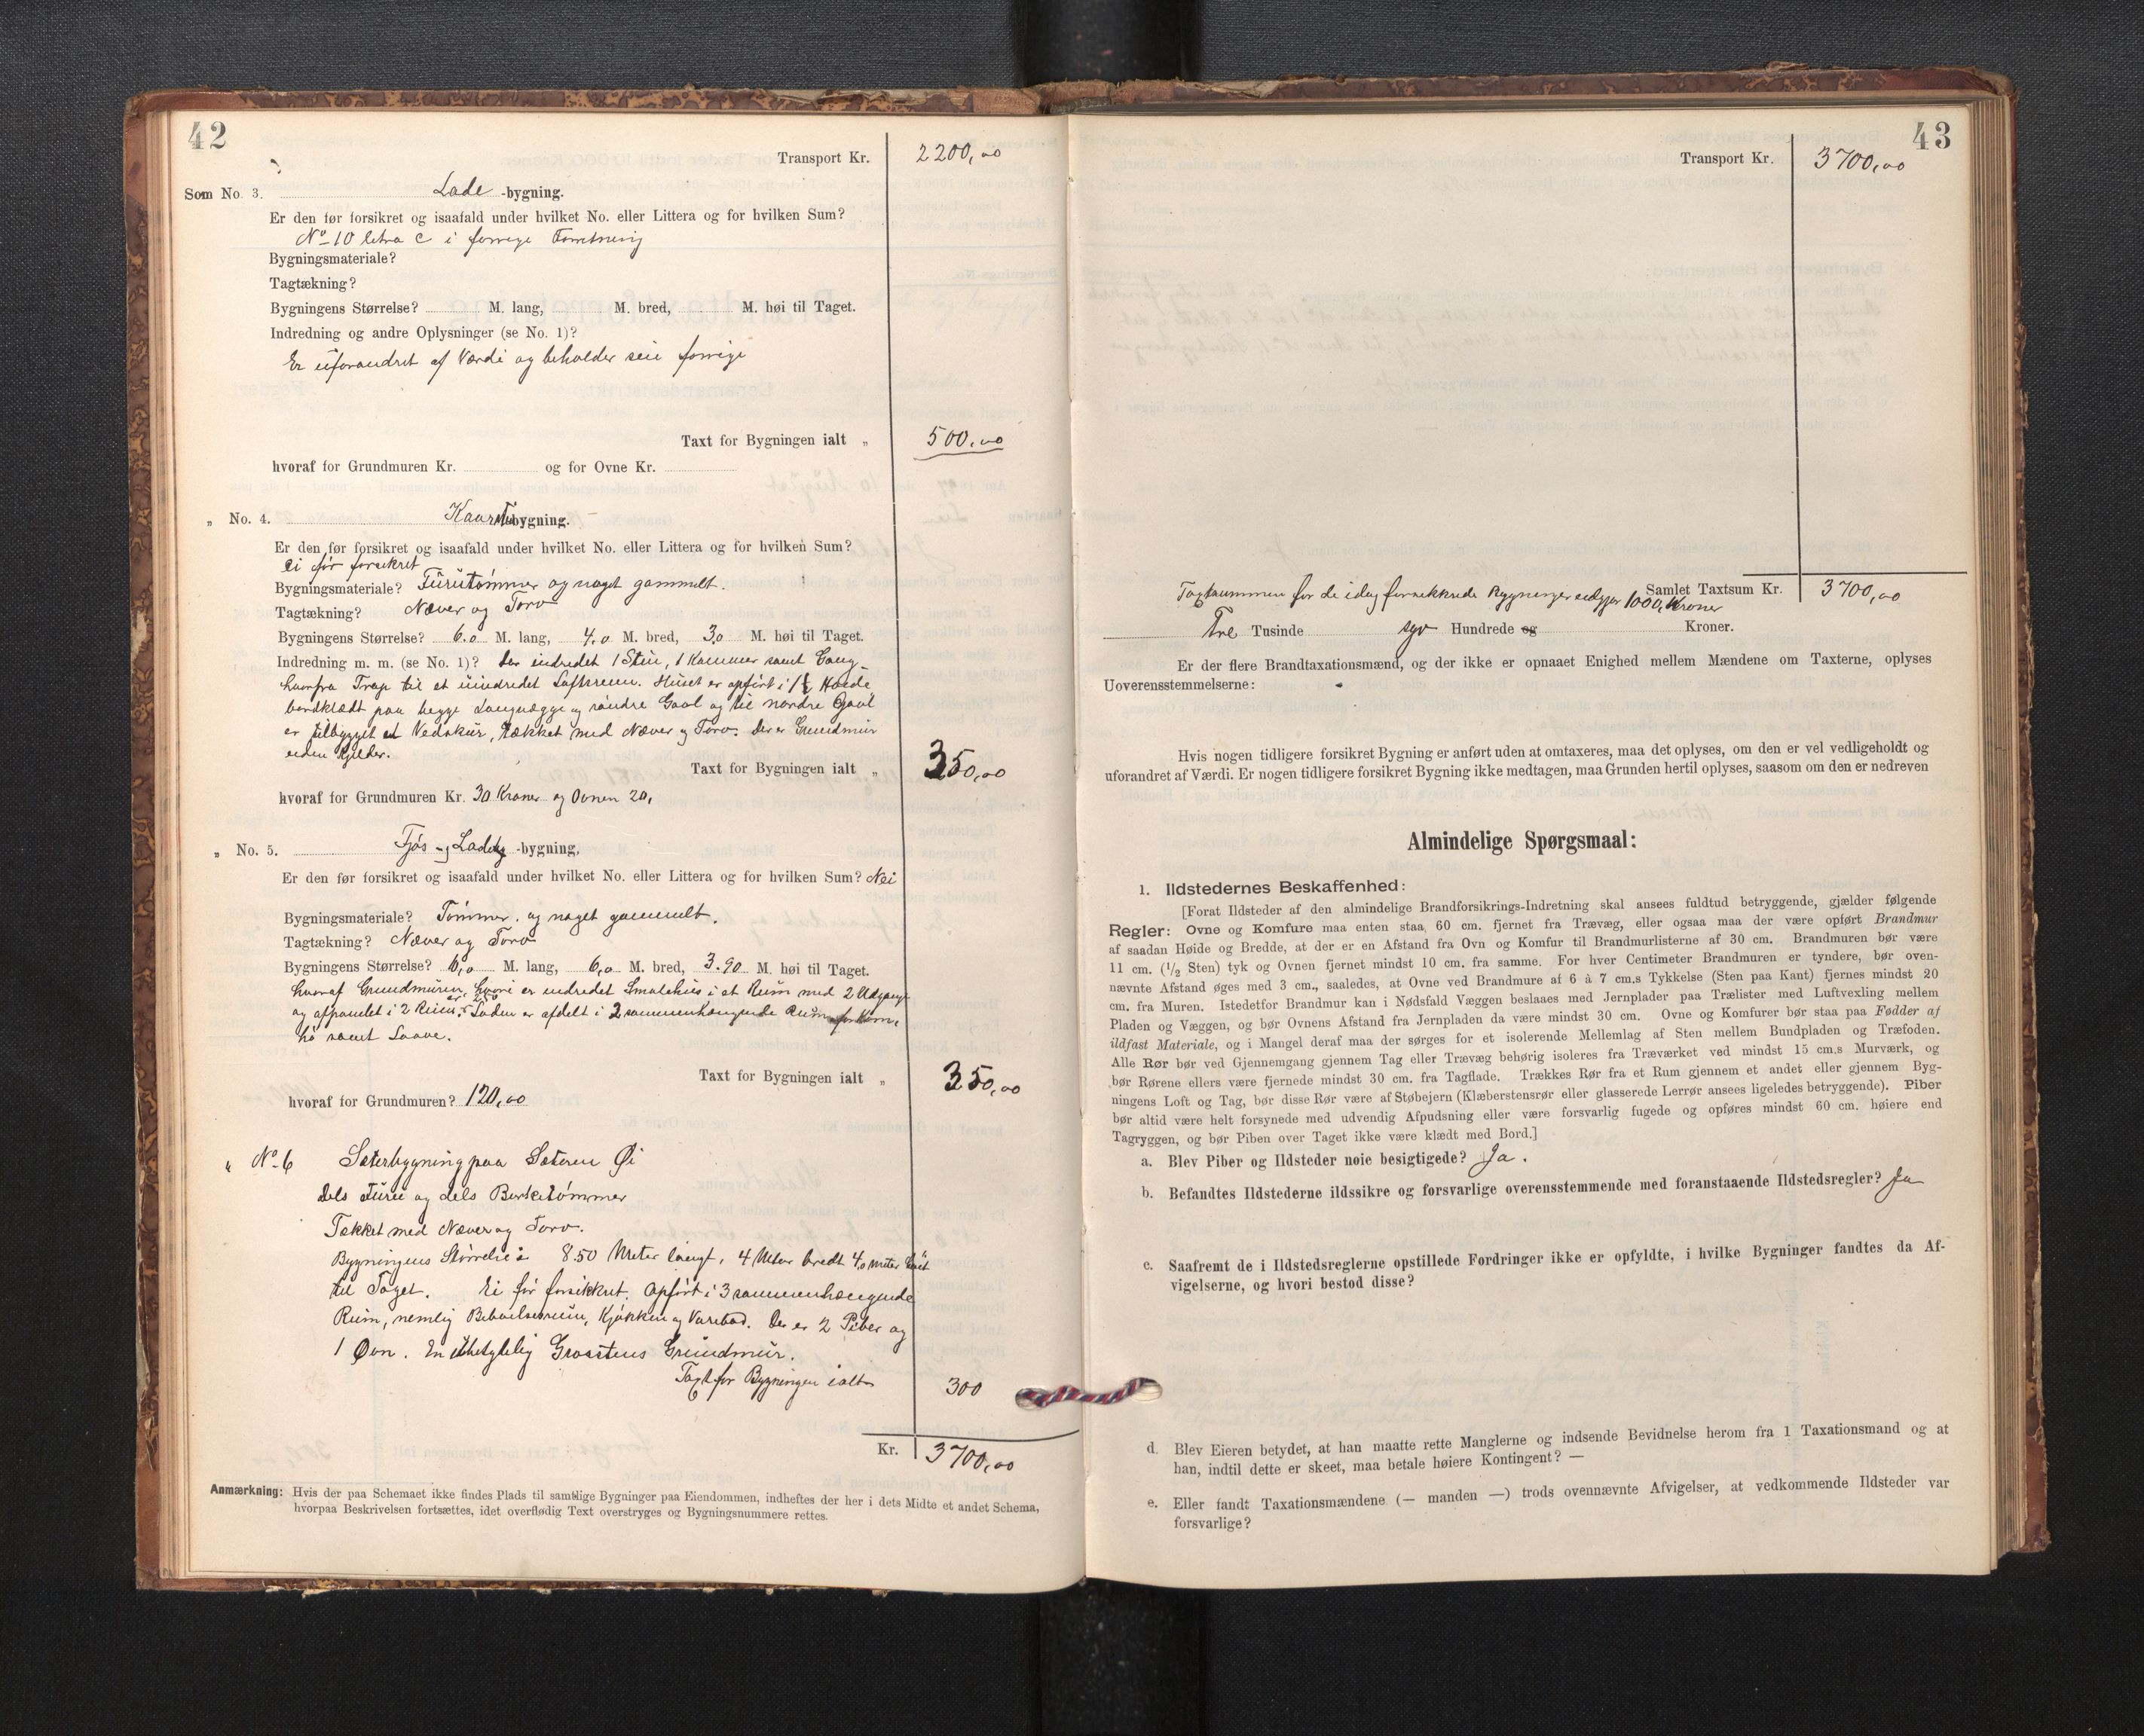 42
Transport Kr. 2200,00
Som No. 3. Lade -bygning.
Er den før forsikret og isaafald under hvilket No. eller Littera og for hvilken Sum?
No 10 letra c i forrige Forretning
Bygningsmateriale?
Tagtækning?
Bygningens Størrelse? M. lang, M. bred, M. høi til Taget.
Indredning og andre Oplysninger (se No. 1)?
Er uforandret af Værdi og beholder sin forrige
Taxt for Bygningen ialt „ 500,00
hvoraf for Grundmuren Kr. og for Ovne Kr.
„ No. 4. -bygning.
Er den før forsikret og isaafald under hvilket No. eller Littera og for hvilken Sum?
ei før forsikret
Bygningsmateriale? Furutømmer og noget gammelt.
Tagtækning? Næver og Torv
Bygningens Størrelse? 6.0 M. lang, 4.0 M. bred, 3,0 M. høi til Taget.
Indredning m. m. (se No. 1)? Der indredet 1 Stue, 1 Kammer samt Gang
hvorfra Trap til et uindredet Loftsrum. Huset er opført i 1½ Høide,
bordklædt paa begge Langvægge og søndre Gavl og til nordre Gavl
er tilbygget et Vedskur, tækket med Næver og Torv. Der er Grundmur
uden Kjelder.
Taxt for Bygningen ialt „ 350,00
hvoraf for Grundmuren Kr. 30 Kroner og Ovnen 20,
„ No. 5. Fjøs og Lade -bygning,
Er den før forsikret og isaafald under hvilket No. eller Littera og for hvilken Sum? Nei
Bygningsmateriale? Tømmer. og noget gammelt.
Tagtækning? Næver og Torv
Bygningens Størrelse? 6,0 M. lang, 6,0 M. bred, 3.90 M. høi til Taget.
hvoraf Grundmuren, hvori er indredet Smalehus i et Rum med 2 Udgange
og afpanelet i 2 Rum. Laden er afdelt i 2 sammenhængende Rum for Korn,
hø samt Laave.
Taxt for Bygningen ialt „ 350,00
hvoraf for Grundmuren? 120,00
„ No 6 Sæterbygning paa Sæteren Øi
dels Furu og dels Berketømmer
Tækket med Næver og Torv.
Bygningens Størrelse: 8.50 Meter langt, 4 Meter bredt 4,0 meter høit
til Taget. Ei før forsikkret. Opført i 3 sammenhængende
Rum, nemlig Beboelsesrum, Kjøkken og Varebod. Der er 2 Piber og
1 Ovn. En ubetydelig Graastens Grundmur.
Taxt for Bygningen ialt 300
Kr. 3700,00
Anmærkning: Hvis der paa Schemaet ikke findes Plads til samtlige Bygninger paa Eiendommen, indheftes der her i dets Midte et andet Schema,
hvorpaa Beskrivelsen fortsættes, idet overflødig Text overstryges og Bygningsnummere rettes.
43
Transport Kr. 3700,00
Samlet Taxtsum Kr. 3700,00
Taxtsummen for de idag forsikkrede Bygninger udgjør 1000, Kroner
Tre Tusinde syv Hundrede og Kroner.
Er der flere Brandtaxationsmænd, og der ikke er opnaaet Enighed mellem Mændene om Taxterne, oplyses
Uoverensstemmelserne:
Hvis nogen tidligere forsikret Bygning er anført uden at omtaxeres, maa det oplyses, om den er vel vedligeholdt og
uforandret af Værdi. Er nogen tidligere forsikret Bygning ikke medtagen, maa Grunden hertil oplyses, saasom om den er nedreven
Almindelige Spørgsmaal:
1. Ildstedernes Beskaffenhed:
[Forat Ildsteder af den almindelige Brandforsikrings-Indretning skal ansees fuldtud betryggende, gjælder følgende
Regler: Ovne og Komfure maa enten staa 60 cm. fjernet fra Trævæg, eller ogsaa maa der være opført Brandmur
af saadan Høide og Bredde, at der er en Afstand fra Ovn og Komfur til Brandmurlisterne af 30 cm. Brandmuren bør være
11 cm. (1/2 Sten) tyk og Ovnen fjernet mindst 10 cm. fra samme. For hver Centimeter Brandmuren er tyndere, bør oven-
nævnte Afstand øges med 3 cm., saaledes, at Ovne ved Brandmure af 6 à 7 cm.s Tykkelse (Sten paa Kant) fjernes mindst 20
cm. fra Muren. Istedetfor Brandmur kan i Nødsfald Væggen beslaaes med Jernplader paa Trælister med Luftvexling mellem
Pladen og Væggen, og bør Ovnens Afstand fra Jernpladen da være mindst 30 cm. Ovne og Komfurer bør staa paa Fødder af
ildfast Materiale, og i Mangel deraf maa der sørges for et isolerende Mellemlag af Sten mellem Bundpladen og Træfoden.
Alle Rør bør ved Gjennemgang gjennem Tag eller Trævæg behørig isoleres fra Træværket ved mindst 15 cm.s Murværk, og
bør Rørene ellers være fjernede mindst 30 cm. fra Tagflade. Trækkes Rør fra et Rum gjennem et andet eller gjennem Byg-
ningens Loft og Tag, bør disse Rør være af Støbejern (Klæberstensrør eller glasserede Lerrør ansees ligeledes betryggende). Piber
bør altid være helt forsynede med udvendig Afpudsning eller være forsvarlig fugede og opføres mindst 60 cm. høiere end
Tagryggen, og bør Piben over Taget ikke være klædt med Bord.]
a. Blev Piber og Ildsteder nøie besigtigede? Ja.
b. Befandtes Ildstederne ildssikre og forsvarlige overensstemmende med foranstaaende Ildstedsregler? Ja
c. Saafremt de i Ildstedsreglerne opstillede Fordringer ikke er opfyldte, i hvilke Bygninger fandtes da Af-
vigelserne, og hvori bestod disse?
d. Blev Eieren betydet, at han maatte rette Manglerne og indsende Bevidnelse herom fra 1 Taxationsmand og at
han, indtil dette er skeet, maa betale høiere Kontingent? —
e. Eller fandt Taxationsmændene (— manden —) trods ovennævnte Afvigelser, at vedkommende Ildsteder var
forsvarlige?